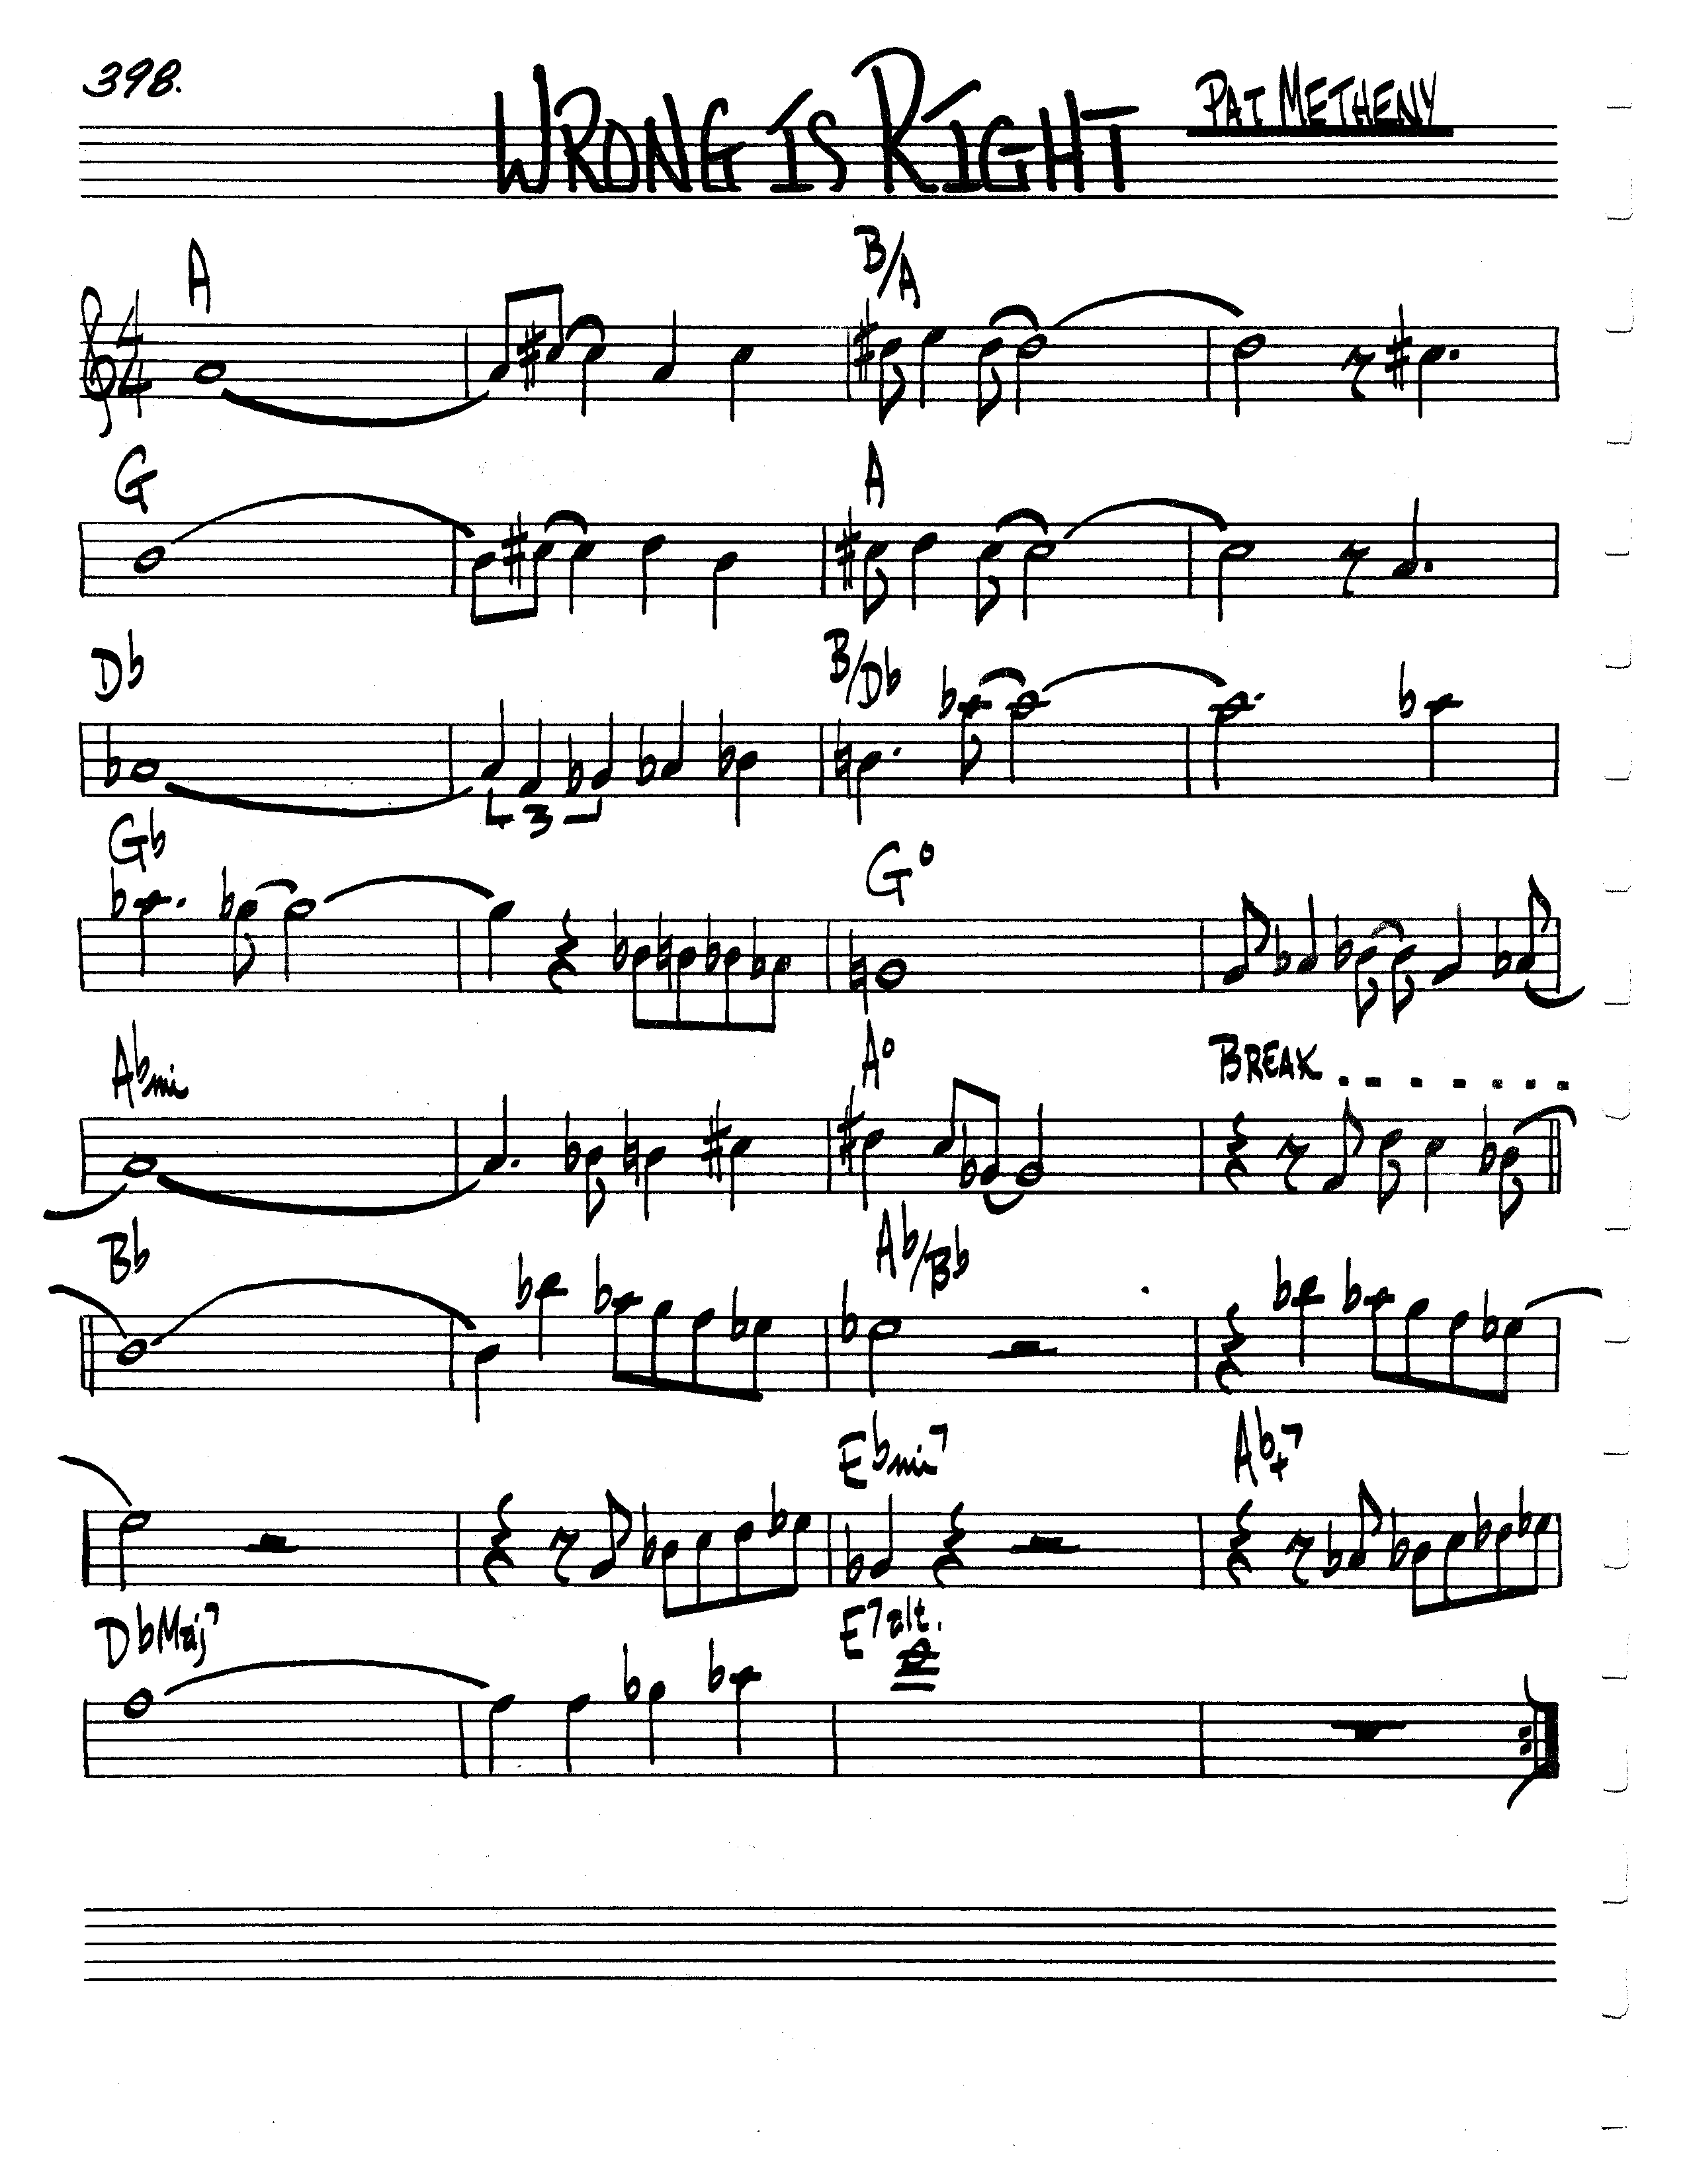 398.
WRONG IS RIGHT
PAT METHENY
A B/A
4
4
G A
Db B/Db
3
Gb Go
Abmi Ao BREAK . . . . . . .
Bb Ab/Bb
Ebmi7 Ab+7
DbMaj7 E7alt.